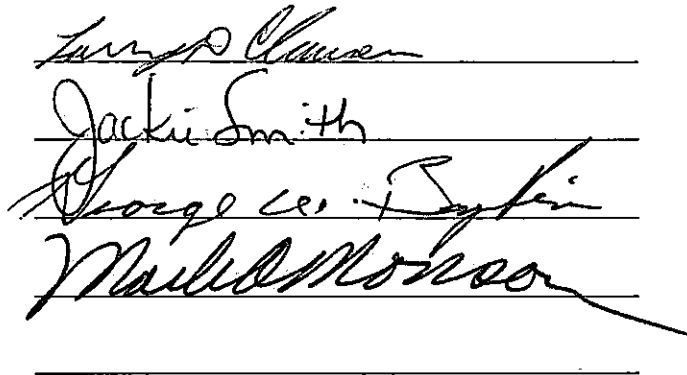 Larry D Clausen
Jackie Smith
George W. Boykin
Mark A Monson